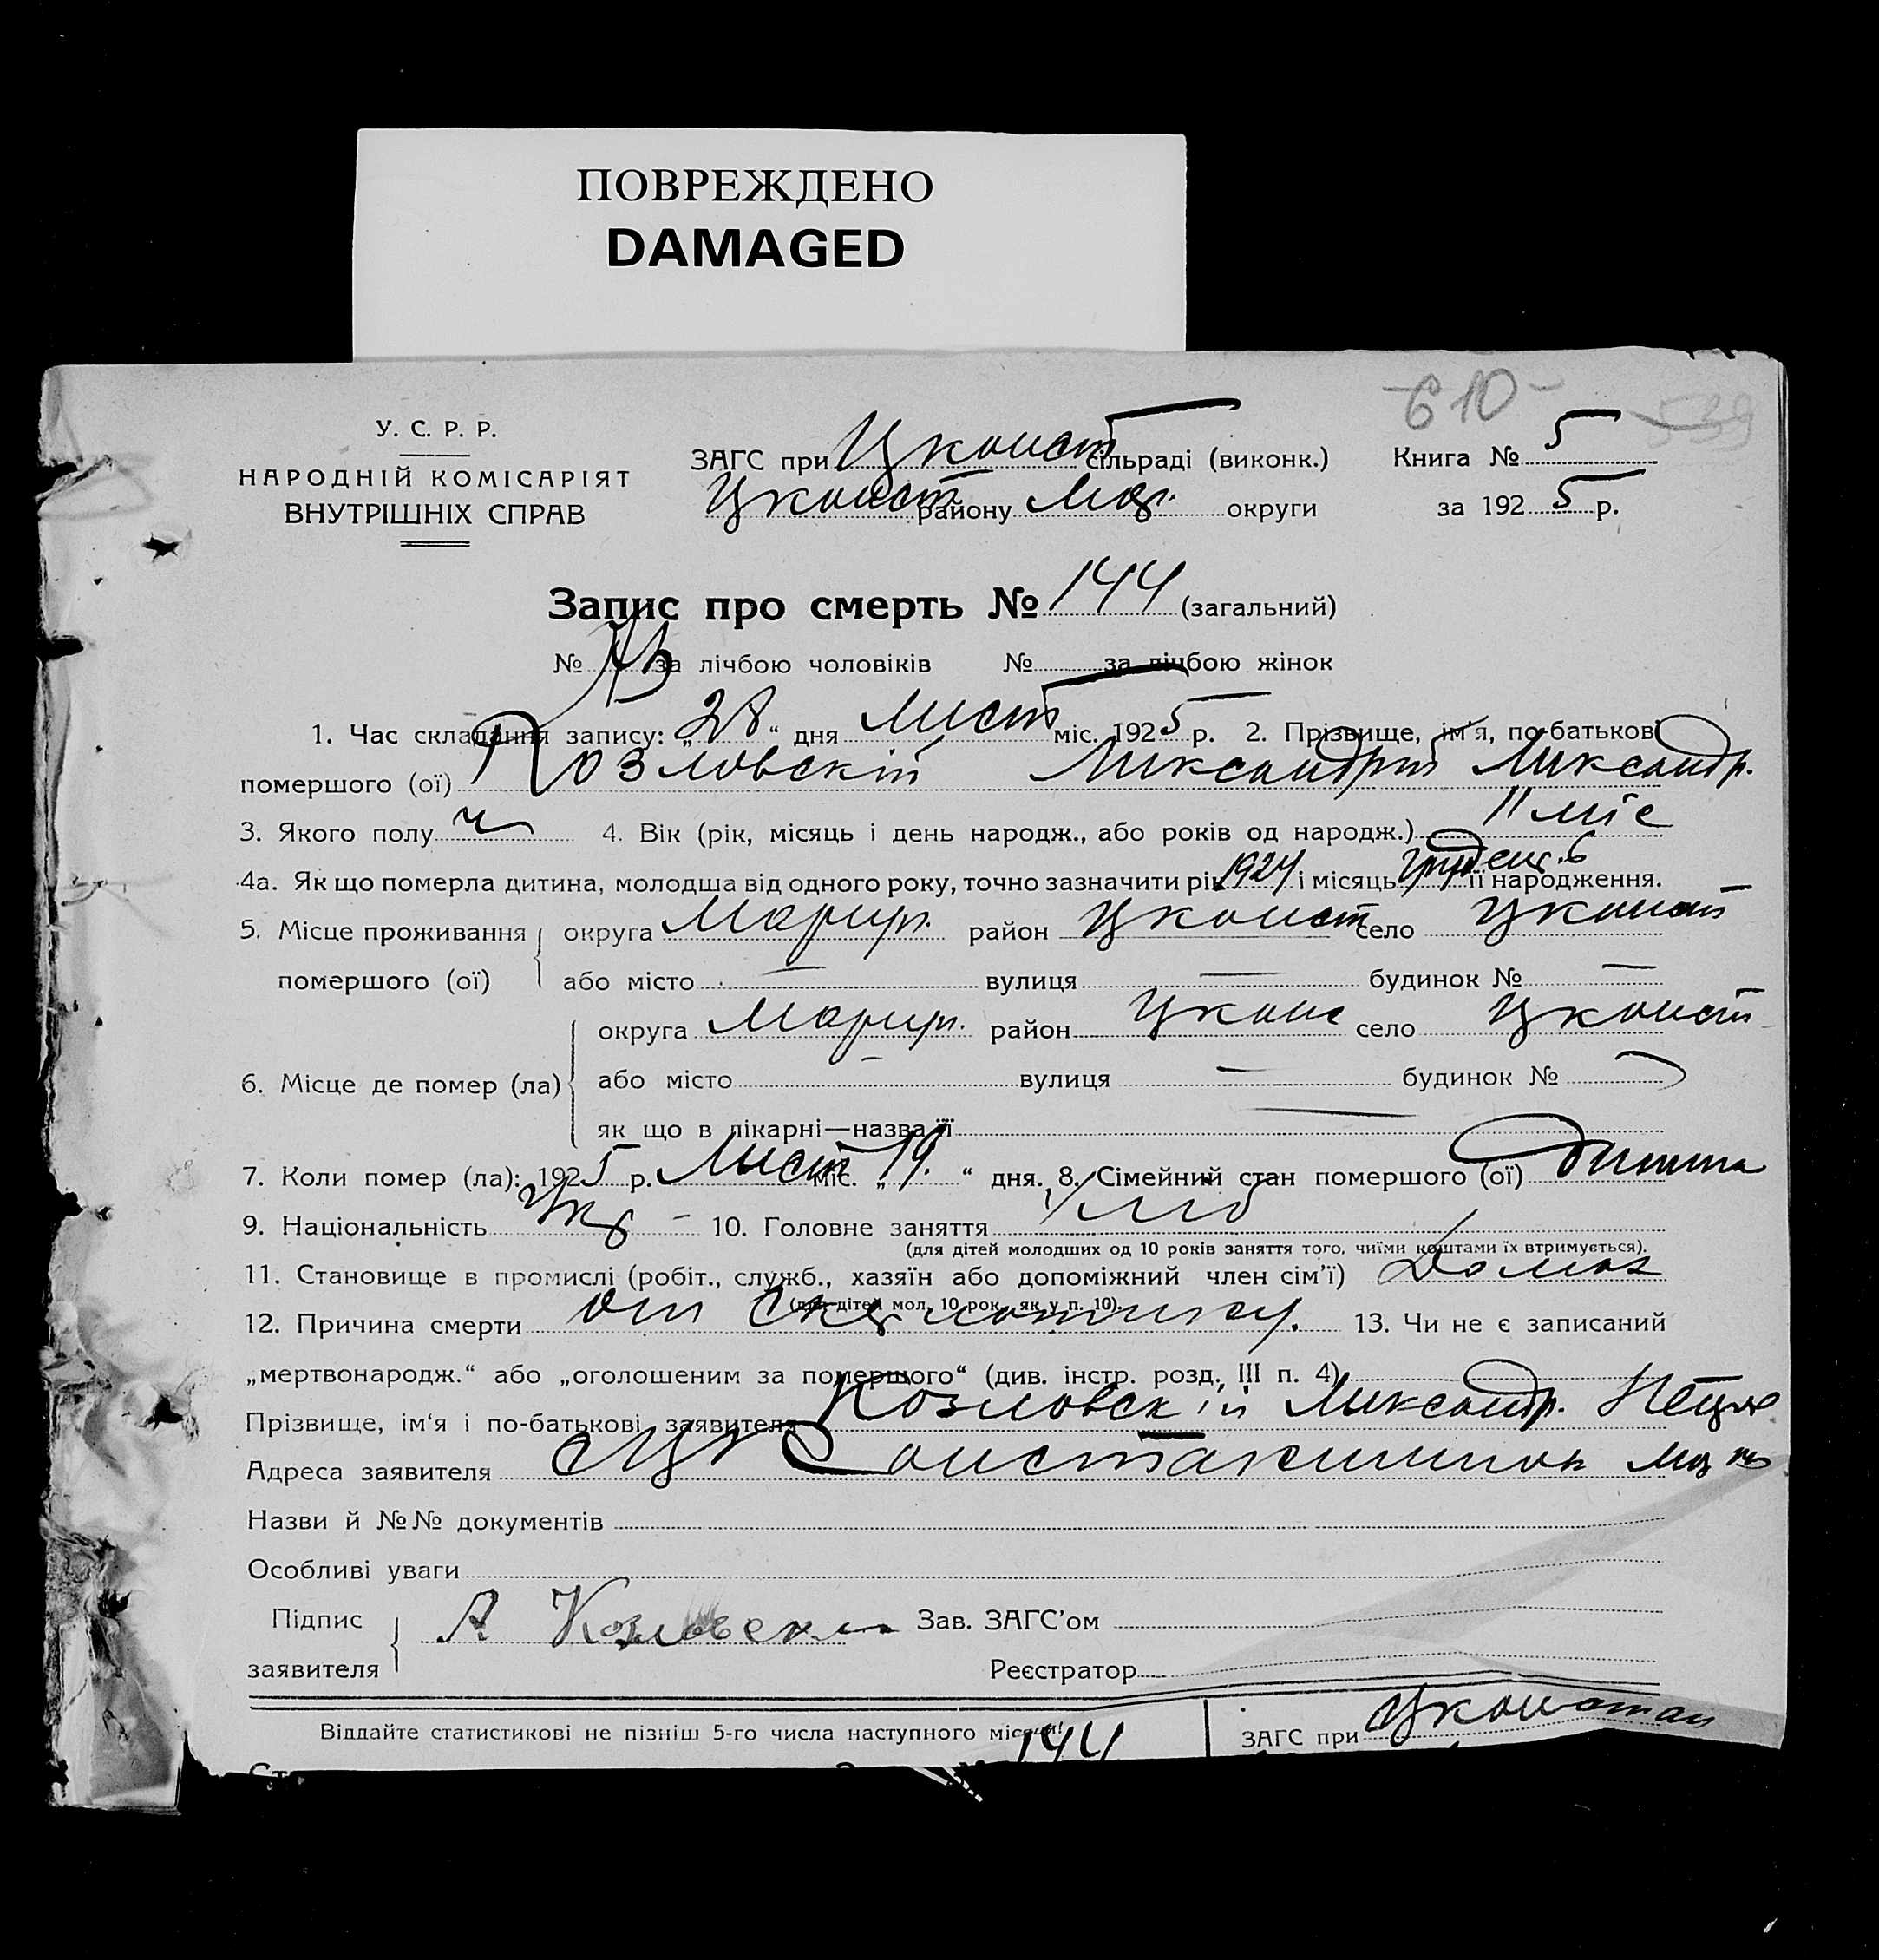 ПОВРЕЖДЕНО
DAMAGED
-610- 539
У. С. Р. Р.
НАРОДНІЙ КОМІСАРІЯТ
ВНУТРІШНІХ СПРАВ
ЗАГС при Цконст сільраді (виконк.) Книга № 5
Цконст району Мар. округи за 1925 р.
Запис про смерть № 144 (загальний)
№ за лічбою чоловіків № за лічбою жінок
1. Час складання запису: „28“ дня Лист міс. 1925 р. 2. Прізвище, ім'я, по-батькові
помершого (ої) Козловскій Александрий Александр.
3. Якого полу ч 4. Вік (рік, місяць і день народж., або років од народж.) 11 міс
4а. Як що померла дитина, молодша від одного року, точно зазначити рік 1924 і місяць грудень 6 її народження.
5. Місце проживання округа Мариуп. район Цконст село Цконст
помершого (ої) або місто — вулиця — будинок № —
округа Мариуп. район Цконс село Цконст
6. Місце де помер (ла) або місто — вулиця — будинок №
як що в лікарні—назва її —
7. Коли помер (ла): 1925 р. Лист міс. „19.“ дня. 8. Сімейний стан помершого (ої) дитина
9. Національність Укр - 10. Головне заняття хліб
(для дітей молодших од 10 років заняття того, чиїми коштами їх втримується).
11. Становище в промислі (робіт., служб., хазяїн або допоміжний член сім'ї)
(для дітей мол. 10 рок., як у п. 10).
12. Причина смерти от 13. Чи не є записаний
„мертвонародж.“ або „оголошеним за помершого“ (див. інстр. розд. III п. 4)
Прізвище, ім'я і по-батькові заявителя Козловскій Александр.
Адреса заявителя
Назви й №№ документів
Особливі уваги
Підпис А Козловски Зав. ЗАГС'ом
заявителя Реєстратор
Віддайте статистикові не пізніш 5-го числа наступного місяця! 144 ЗАГС при Цконстан